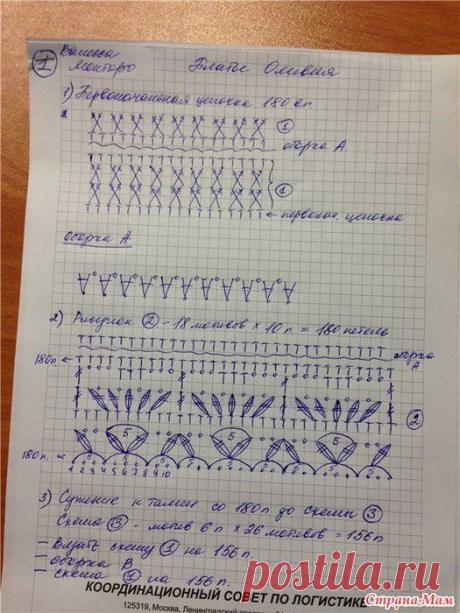 1 Ванесса
Монторо
Платье Оливия
1) Первоначальная цепочка 180 вп
1
оборка А
1
← первонач. цепочка
оборка А
2) Рисунок 2 - 18 мотивов × 10 п = 180 петель
оборка
А
180п ←
2
5 5 5
180п. ←
5 5 5 5
1 2 3 4 5 6 7 8 9 10
3) Сужение к талии со 180п до схемы 3
Схема 3 - мотив 6п × 26 мотивов = 156п
– Вязать схему 1 на 156п.
– оборка В
– схема 1 на 156п.
КООРДИНАЦИОННЫЙ СОВЕТ ПО ЛОГИСТИКЕ
125319, Москва, Ленинградский
posila.com
Страна Мам